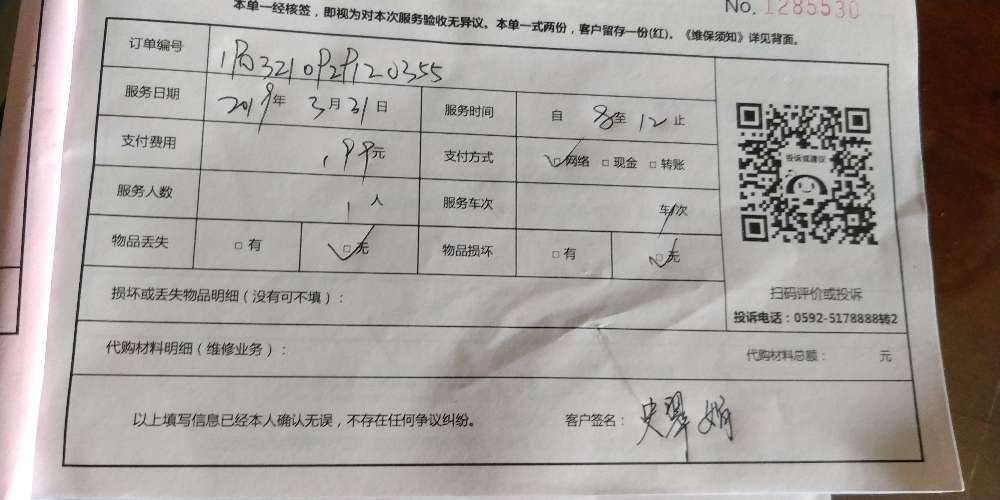 No. 1285530
本单一经核签，即视为对本次服务验收无异议。本单一式两份，客户留存一份(红)。《维保须知》详见背面。
订单编号
服务日期 2019年 3月31日 服务时间 自 8至12止
支付费用 199元 支付方式 □网络 □现金 □转账
服务人数 1人 服务车次 车/次
物品丢失 □有 □无 物品损坏 □有 □无
投诉或建议
扫码评价或投诉
投诉电话：0592-5178888转2
损坏或丢失物品明细（没有可不填）：
代购材料明细（维修业务）： 代购材料总额： 元
以上填写信息已经本人确认无误，不存在任何争议纠纷。 客户签名：史翠娟